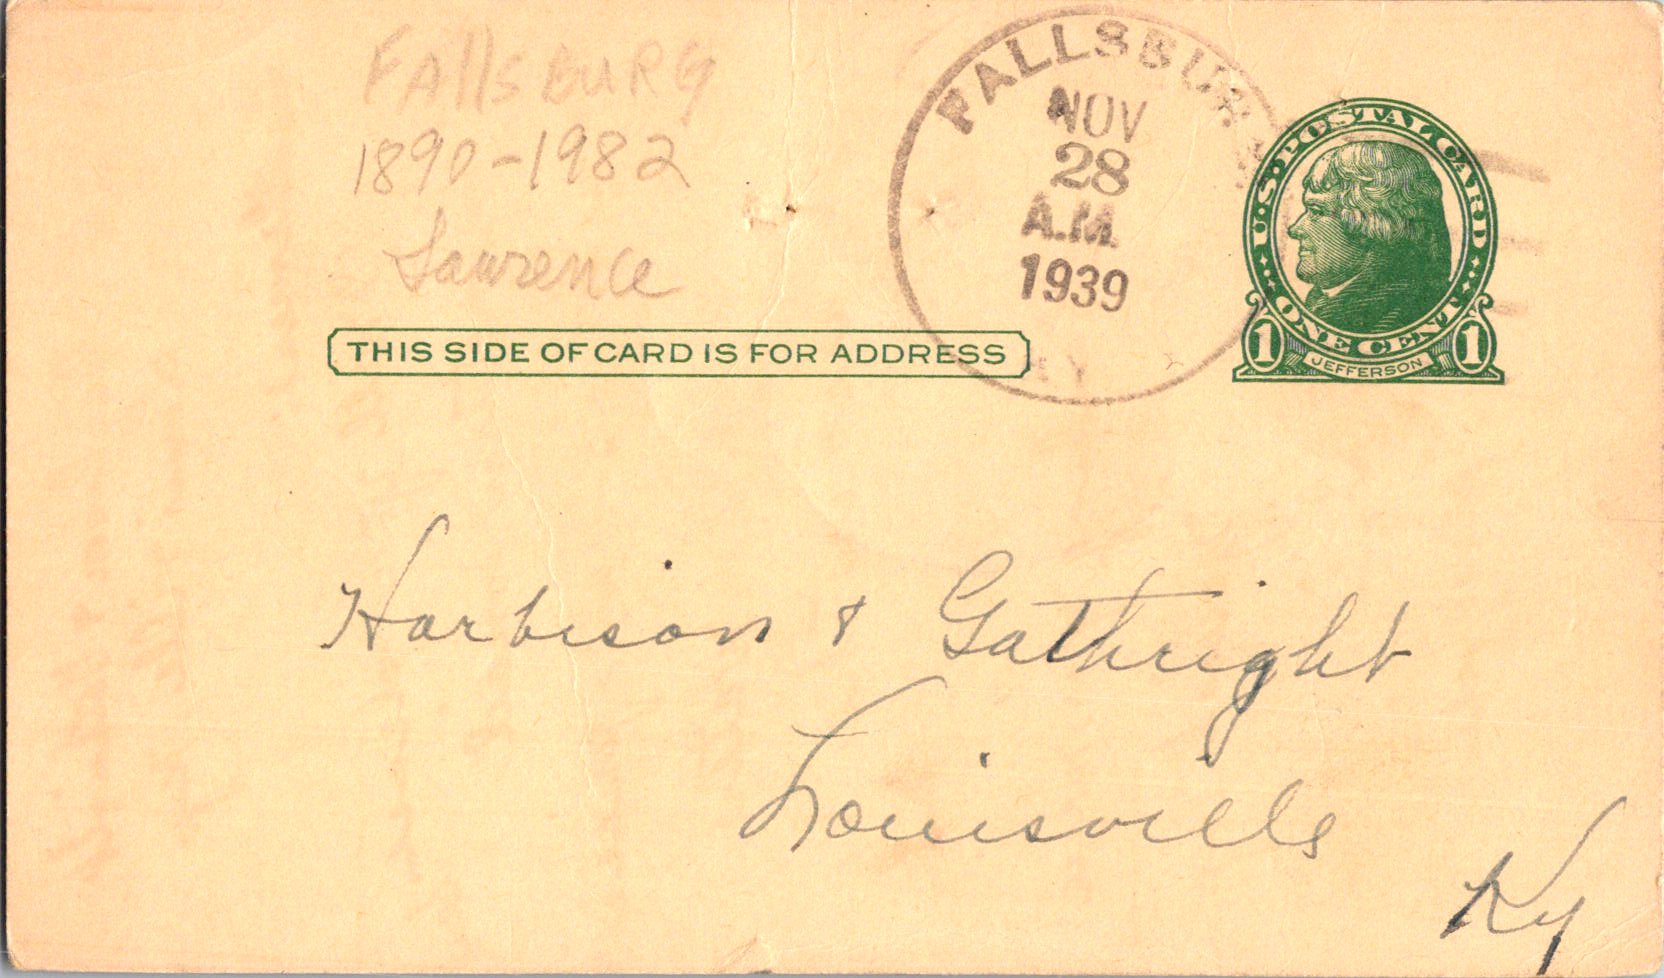 FAllsBURG
1890-1982
Lawrence
FALLSBURG
NOV
28
A.M.
1939
KY
U.S. POSTAL CARD
ONE CENT
1 JEFFERSON 1
THIS SIDE OF CARD IS FOR ADDRESS
Harbison & Gathright
Louisville
Ky